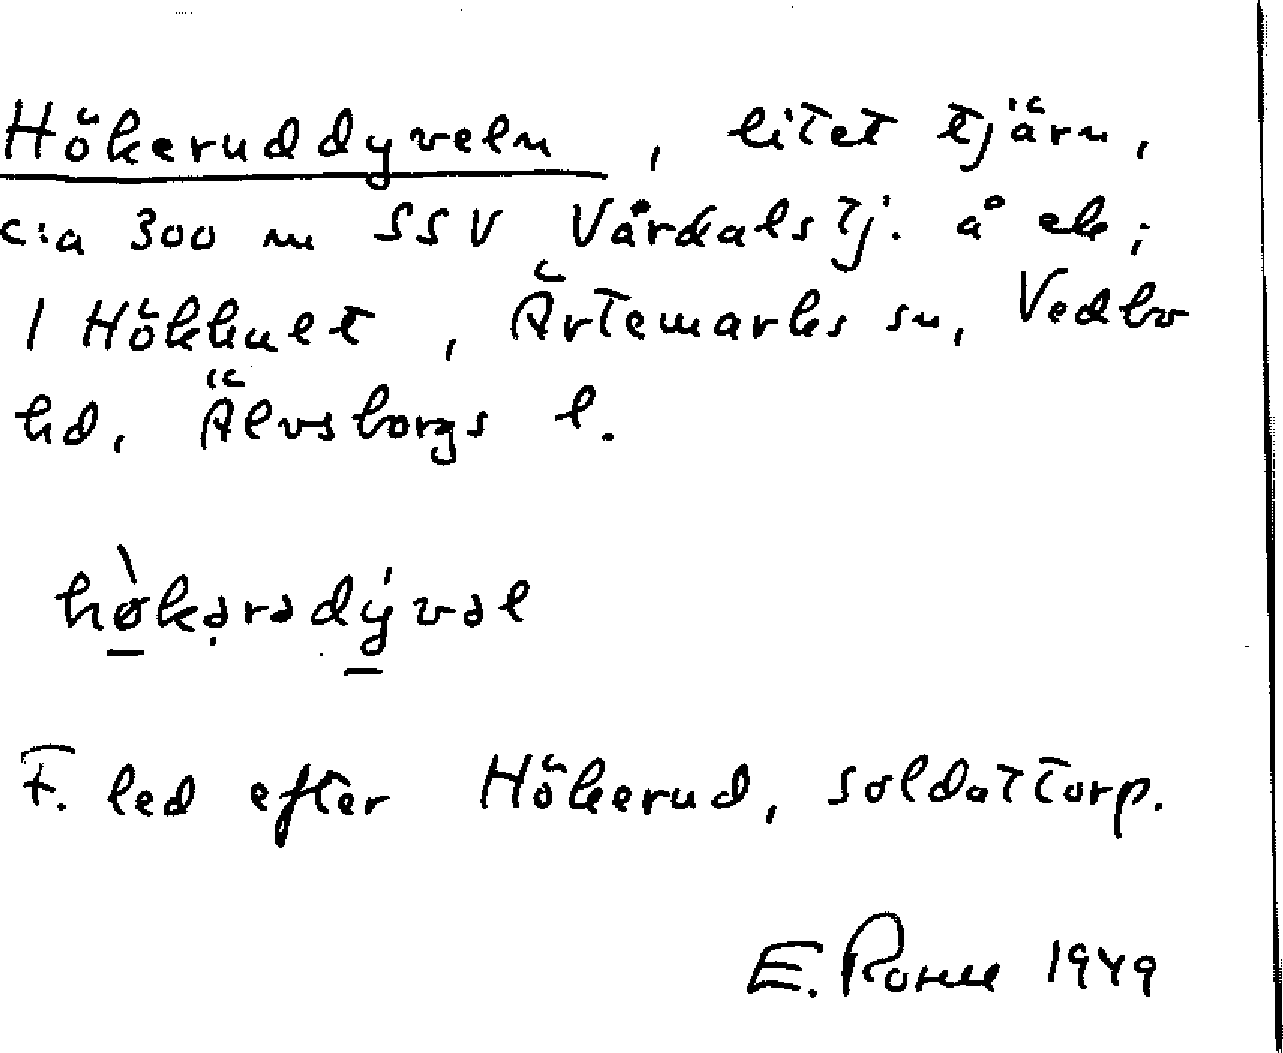 Hökeruddyveln, litet tjärn,
c:a 300 m SSV Vårdalstj. å ek;
1 Hökhult, Ärtemarks sn, Vedbo
hd, Älvsborgs l.
hø̀kərədývəl
F. led efter Hökerud, soldattorp.
E. 1949